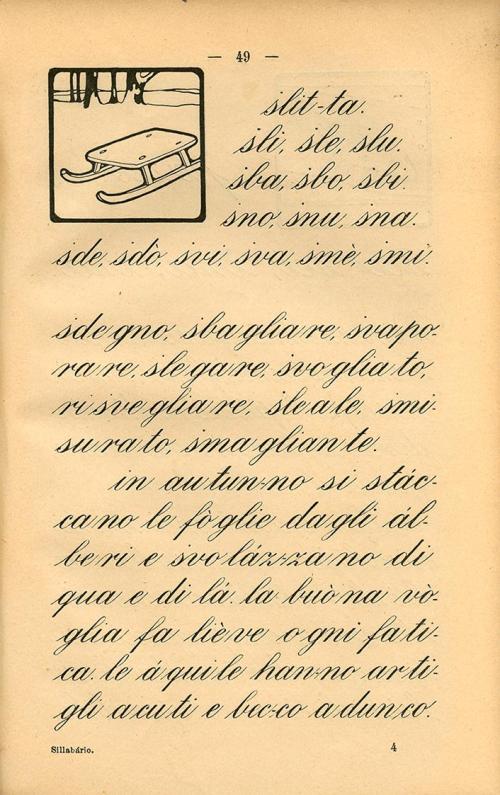 — 49 —
slit-ta.
sli, sle, slu.
sba, sbo, sbi.
sno, snu, sna.
sde, sdò, svi, sva, smè, smi.
sdegno, sbagliare, svapo-
rare, slegare, svogliato,
risvegliare, sleale, smi-
surato, smagliante.
in autun-no si stác-
cano le fòglie dagli ál-
beri e svoláz-zano di
qua e di lá. la buòna vò-
glia fa liève ogni fati-
ca. le áquile han-no arti-
gli acuti e bec-co adunco.
Sillabário. 4